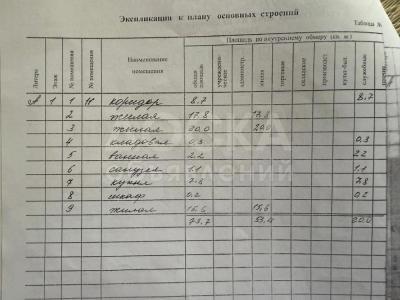 Экспликация к плану основных строений
Таблица №
Литера Этаж № помещения № помещения Наименование помещения Площадь по внутреннему обмеру (кв. м.)
общая площадь учрежденческая администр. жилая торговая складские производст культ-быт. служебные
А 1 1 Н коридор 8.7 8.7
2 жилая 17.8 17.8
3 жилая 20.0 20.0
4 кладовая 0.3 0.3
5 ванная 2.2 2.2
6 санузел 1.1 1.1
7 кухня 7.8 7.8
8 шкаф 0.2 0.2
9 жилая 15.6 15.6
73.7 53.4 20.0
ДОСКА
ОБЪЯВЛЕНИЙ